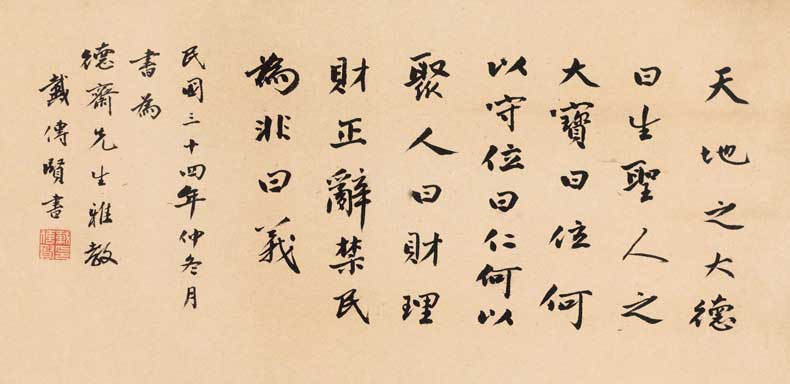 天地之大德
曰生聖人之
大寶曰位何
以守位曰仁何以
聚人曰財理
財正辭禁民
為非曰義
民國三十四年仲冬月
書為
德齋先生雅教
戴傳賢書